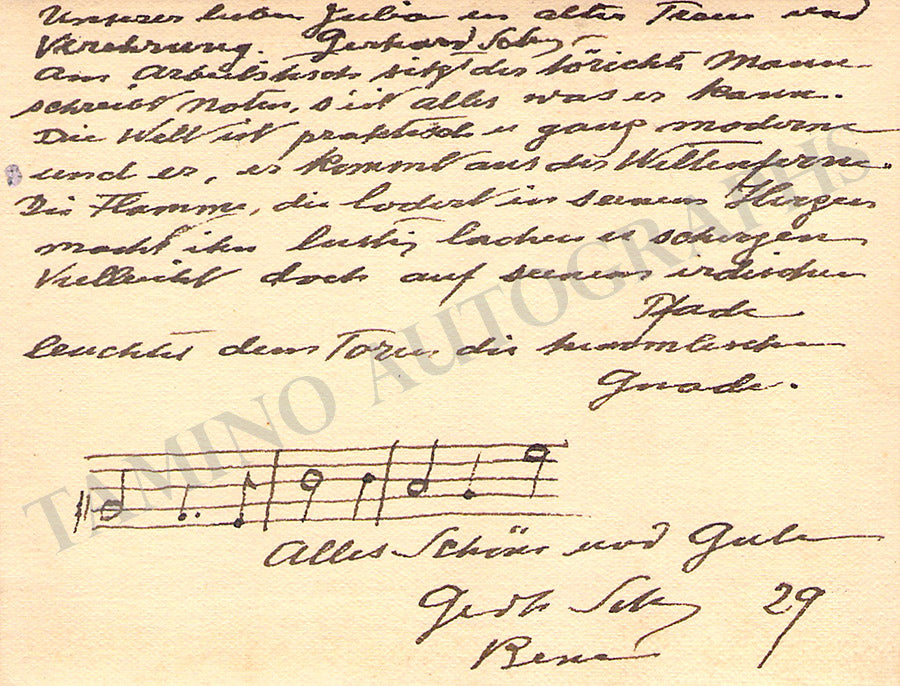 Unserer lieben Julia in alter Treue und
Verehrung. Gerhard
Am Arbeitstisch sitzt der törichte Mann
schreibt Noten, s'ist alles was er kann.
Die Welt ist praktisch u ganz modern
und er, er kommt aus der Weltenferne.
Die Flamme, die lodert in seinem Herzen
macht ihn lustig lachen u scherzen
Vielleicht doch auf seinem irdischen
Pfade
leuchtet dem Toren die himmlische
Gnade.
Alles Schöne und Gute
29
TAMINO AUTOGRAPHS